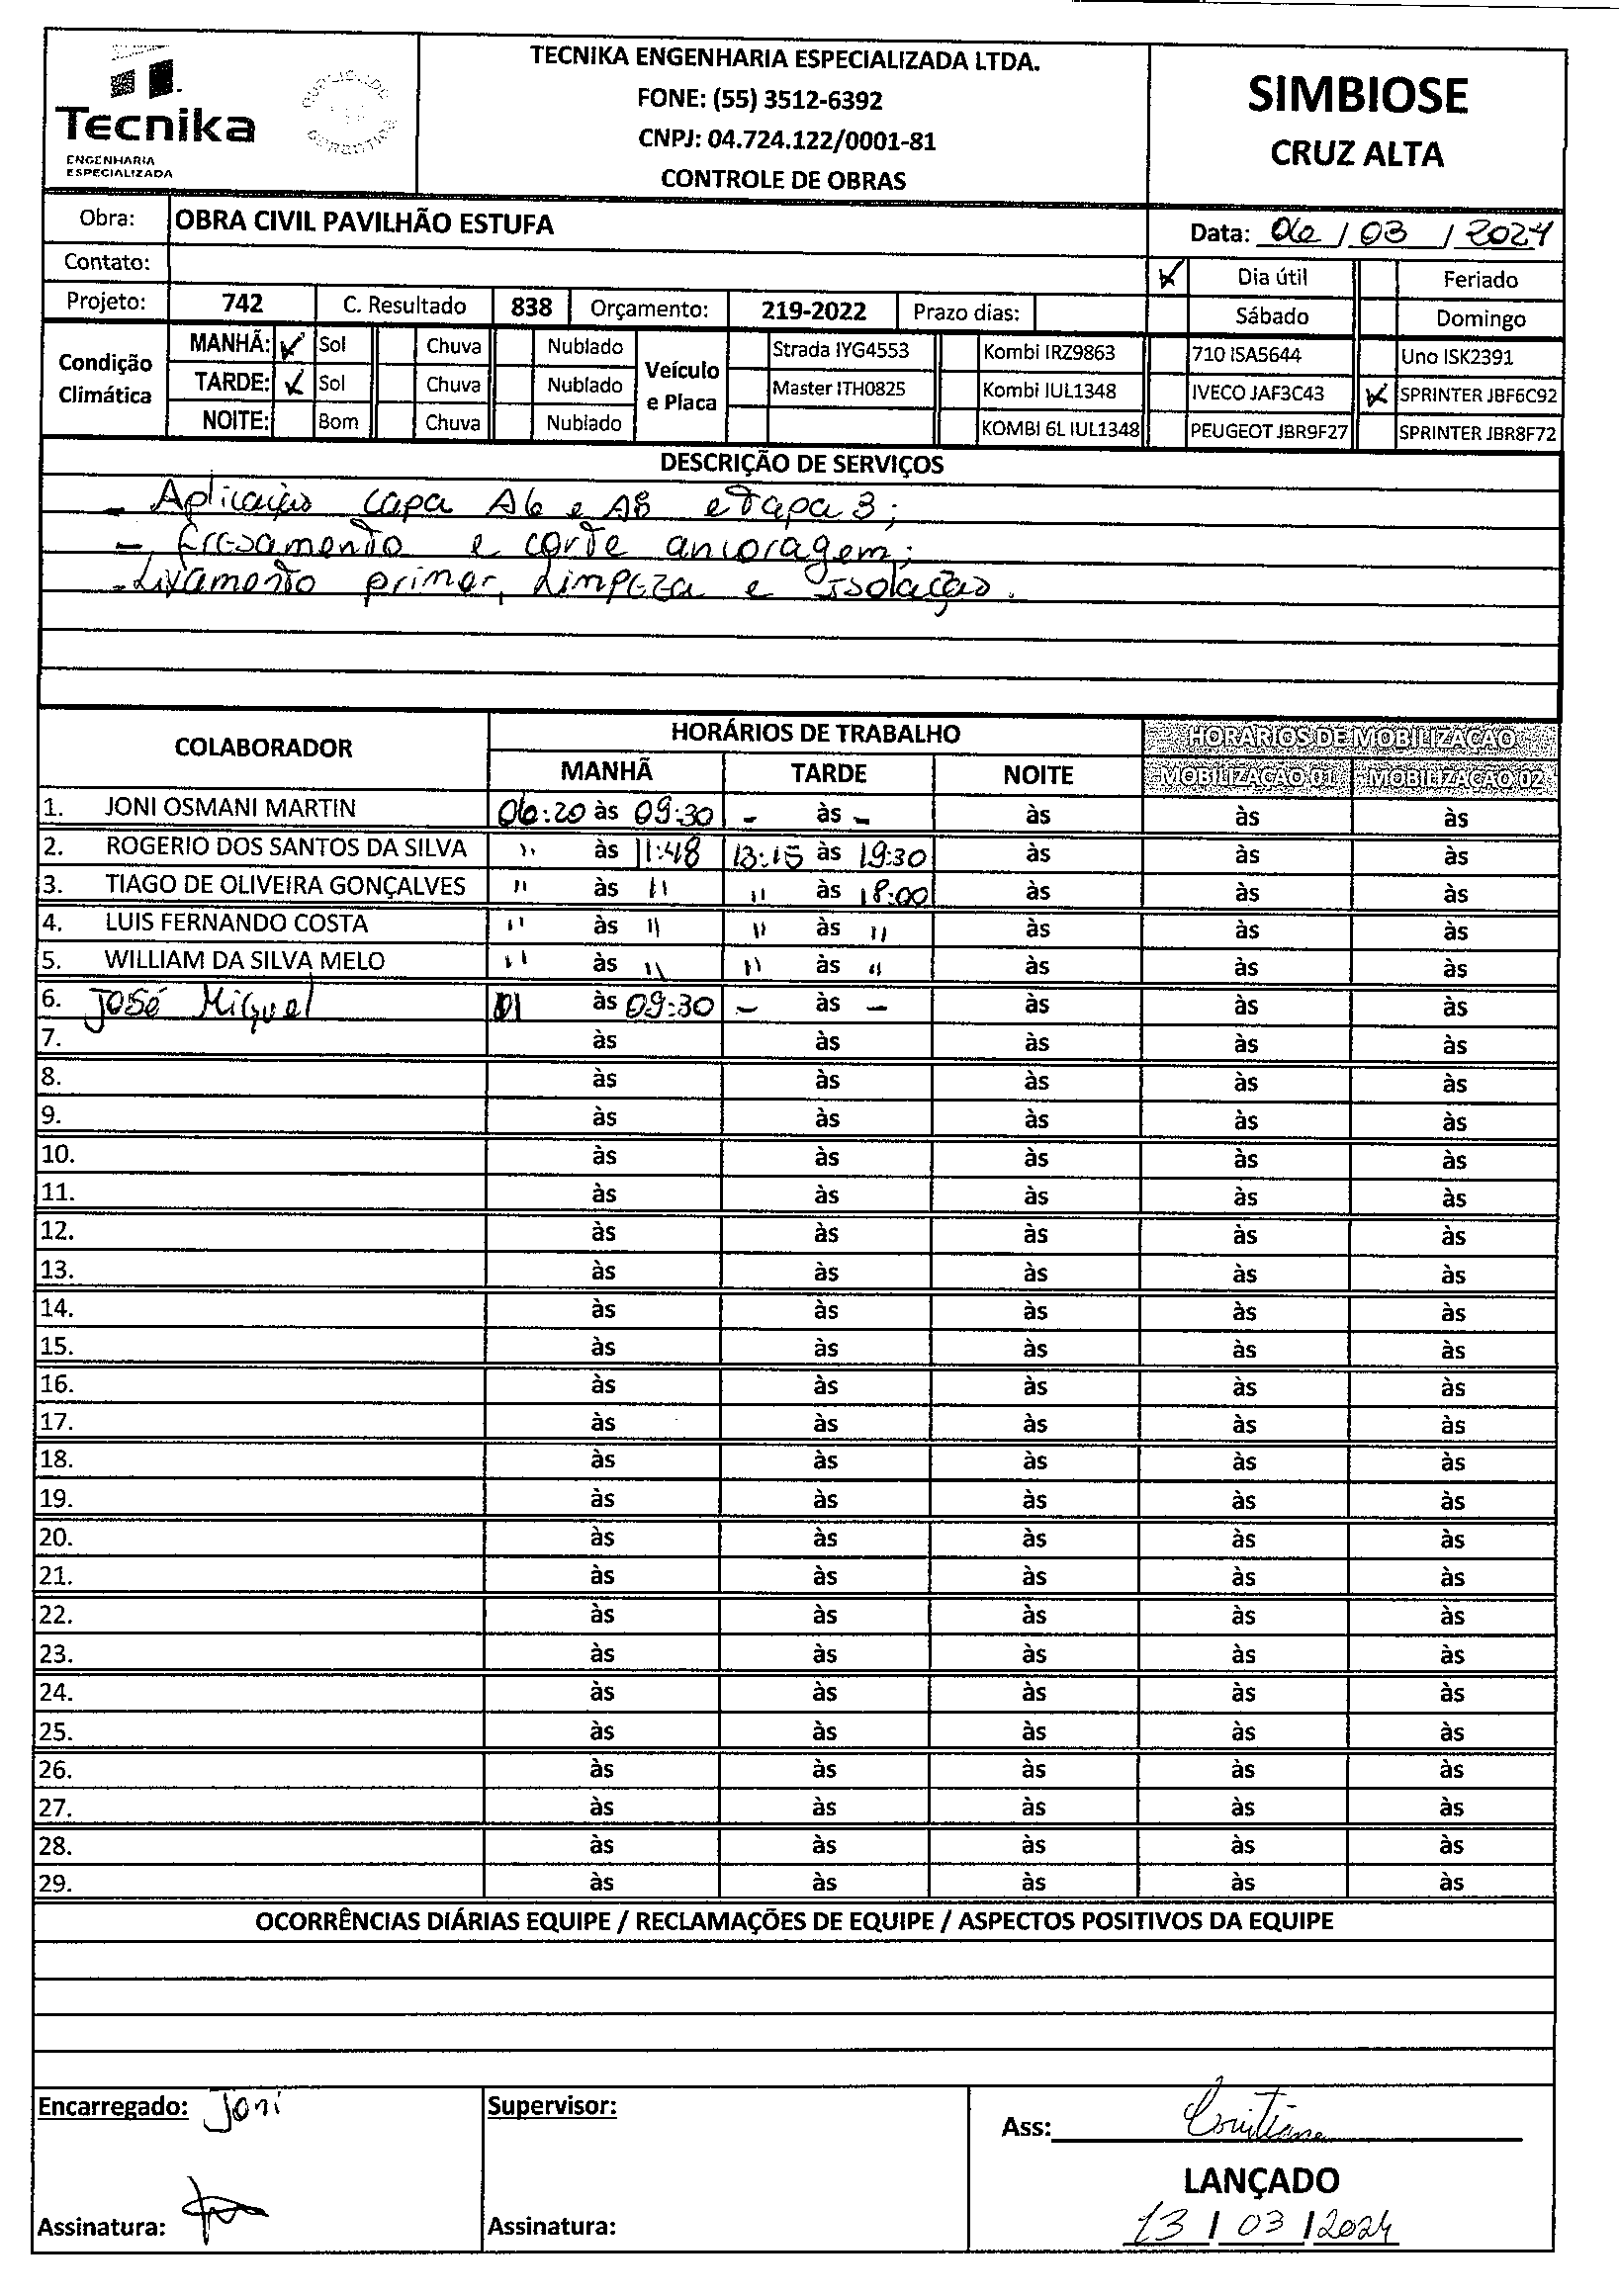 Tecnika
ENGENHARIA
ESPECIALIZADA
TECNIKA ENGENHARIA ESPECIALIZADA LTDA.
FONE: (55) 3512-6392
CNPJ: 04.724.122/0001-81
CONTROLE DE OBRAS
SIMBIOSE
CRUZ ALTA
Obra: OBRA CIVIL PAVILHÃO ESTUFA
Data: 06 / 03 / 2024
Contato:
Dia útil Feriado
Projeto: 742 C. Resultado 838 Orçamento: 219-2022 Prazo dias:
Sábado Domingo
Condição Climática
MANHÃ: Sol Chuva Nublado
TARDE: Sol Chuva Nublado
NOITE: Bom Chuva Nublado
Veículo e Placa
Strada IYG4553 Kombi IRZ9863 710 ISA5644 Uno ISK2391
Master ITH0825 Kombi IUL1348 IVECO JAF3C43 SPRINTER JBF6C92
KOMBI 6L IUL1348 PEUGEOT JBR9F27 SPRINTER JBR8F72
DESCRIÇÃO DE SERVIÇOS
- Aplicação capa A6 e A8 etapa 3;
- Fresamento e corte ancoragem;
- Lixamento primer, Limpeza e Isolação.
COLABORADOR HORÁRIOS DE TRABALHO HORÁRIOS DE MOBILIZAÇÃO
MANHÃ TARDE NOITE MOBILIZAÇÃO 01 MOBILIZAÇÃO 02
1. JONI OSMANI MARTIN 06:20 às 09:30 - às - às às às
2. ROGERIO DOS SANTOS DA SILVA " às 11:48 13:15 às 19:30 às às às
3. TIAGO DE OLIVEIRA GONÇALVES " às " " às 18:00 às às às
4. LUIS FERNANDO COSTA " às " " às " às às às
5. WILLIAM DA SILVA MELO " às " " às " às às às
6. José Miguel às 09:30 - às - às às às
7. às às às às às
8. às às às às às
9. às às às às às
10. às às às às às
11. às às às às às
12. às às às às às
13. às às às às às
14. às às às às às
15. às às às às às
16. às às às às às
17. às às às às às
18. às às às às às
19. às às às às às
20. às às às às às
21. às às às às às
22. às às às às às
23. às às às às às
24. às às às às às
25. às às às às às
26. às às às às às
27. às às às às às
28. às às às às às
29. às às às às às
OCORRÊNCIAS DIÁRIAS EQUIPE / RECLAMAÇÕES DE EQUIPE / ASPECTOS POSITIVOS DA EQUIPE
Encarregado: Joni
Supervisor:
Ass: Cristiane
LANÇADO
Assinatura:
Assinatura:
13 / 03 / 2024